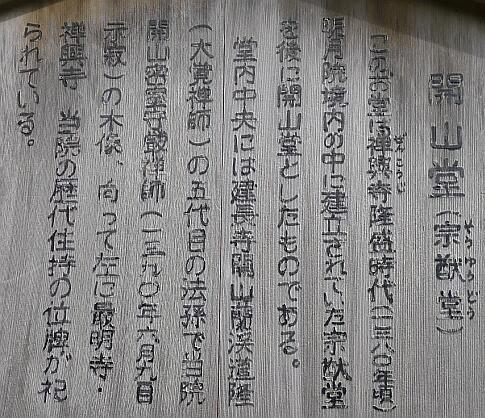 開山堂(宗猷堂)
そうゆうどう
このお堂は禅興寺隆盛時代(一三八〇年頃)
ぜんこうじ
明月院境内の中に建立されていた宗猷堂
を後に開山堂としたものである。
堂内中央には建長寺開山蘭渓道隆
(大覚禅師)の五代目の法孫で当院
開山密室守厳禅師(一三九〇年六月九日
示寂)の木像、向って左に最明寺・
禅興寺 当院の歴代住持の位牌が祀
られている。